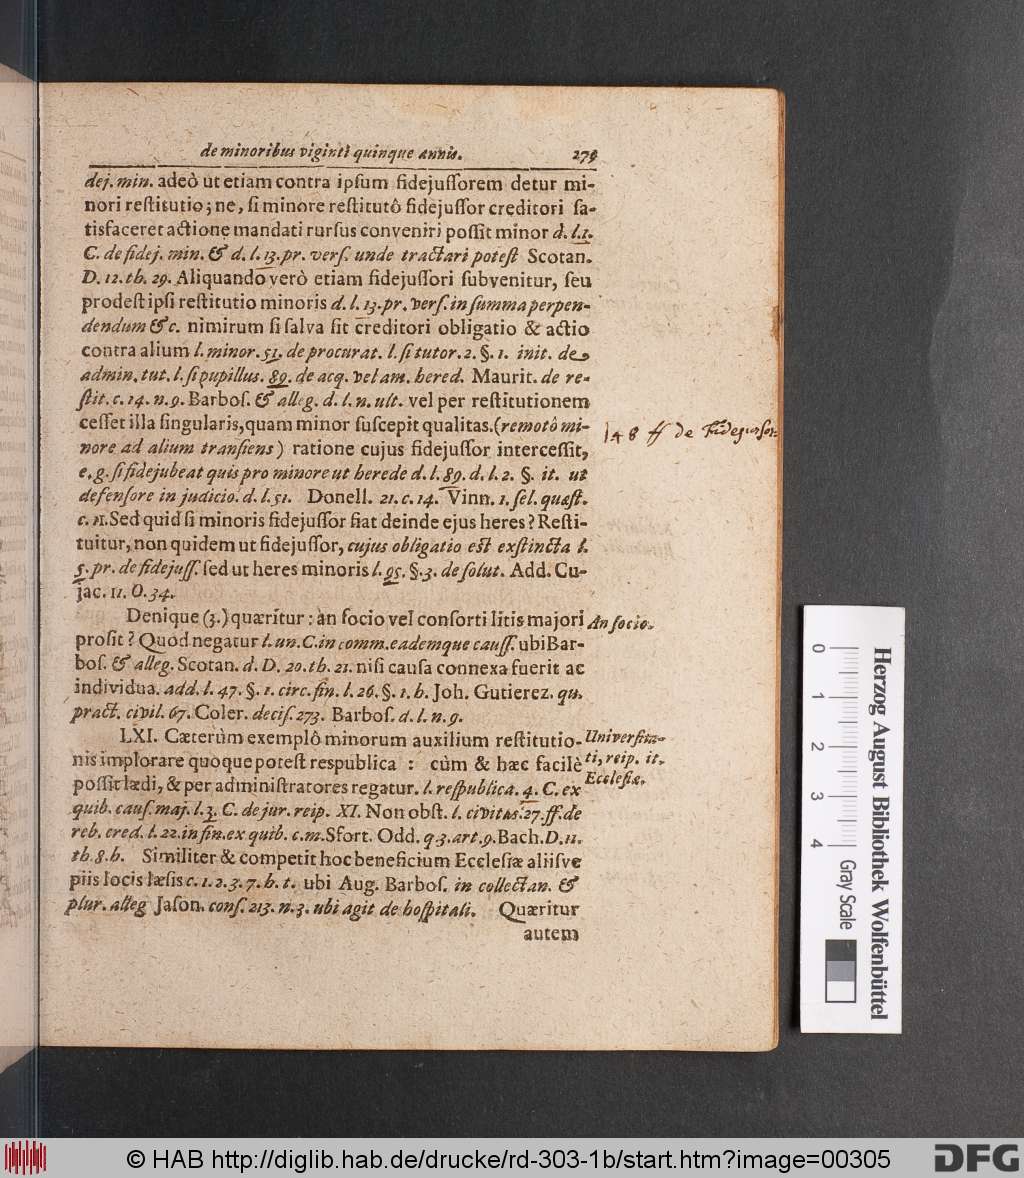 de minoribus viginti quinque annis. 279
dej. min. adeò ut etiam contra ipsum fidejussorem detur mi-
nori restitutio; ne, si minore restitutô fidejussor creditori sa-
tisfaceret actione mandati rursus conveniri possit minor d. l.1.
C. de fidej. min. & d. l. 13. pr. vers. unde tractari potest Scotan.
D. 12. th. 29. Aliquando verò etiam fidejussori subvenitur, seu
prodest ipsi restitutio minoris d. l. 13. pr. vers. in summa perpen-
dendum & c. nimirum si salva sit creditori obligatio & actio
contra alium l. minor. 51. de procurat. l. si tutor. 2. §. 1. init. de
admin. tut. l. si pupillus. 89. de acq. vel am. hered. Maurit. de re-
stit. c. 14. n. 9. Barbos. & alleg. d. l. n. ult. vel per restitutionem
cesset illa singularis, quam minor suscepit qualitas. (remotô mi-
nore ad alium transiens) ratione cujus fidejussor intercessit,
e. g. si fidejubeat quis pro minore ut herede d. l. 89. d. l. 2. §. it. ut
defensore in judicio. d. l. 51. Donell. 21. c. 14. Vinn. 1. sel. quæst.
c. 11. Sed quid si minoris fidejussor fiat deinde ejus heres? Resti-
tuitur, non quidem ut fidejussor, cujus obligatio est exstincta l.
5. pr. de fidejuss. sed ut heres minoris l. 95. §. 3. de solut. Add. Cu-
jac. 11. O. 34.
Denique (3.) quæritur: an socio vel consorti litis majori
prosit? Quod negatur l. un. C. in comm. eademque causs. ubi Bar-
bos. & alleg. Scotan. d. D. 20. th. 21. nisi causa connexa fuerit ac
individua. add. l. 47. §. 1. circ. fin. l. 26. §. 1. h. Joh. Gutierez. qu.
pract. civil. 67. Coler. decis. 273. Barbos. d. l. n. 9.
LXI. Cæterùm exemplô minorum auxilium restitutio-
nis implorare quoque potest respublica: cùm & hæc facilè
possit lædi, & per administratores regatur. l. respublica. 4. C. ex
quib. caus. maj. l. 3. C. de jur. reip. XI. Non obst. l. civitas. 27. ff. de
reb. cred. l. 22. in fin. ex quib. c. m. Sfort. Odd. q. 3. art. 9. Bach. D. 11.
th. 8. b. Similiter & competit hoc beneficium Ecclesiæ aliisve
piis locis læsis c. 1. 2. 3. 7. h. t. ubi Aug. Barbos. in collectan. &
plur. alleg Jason. cons. 213. n. 3. ubi agit de hospitali. Quæritur
autem
l 48 ff de Fidejussor:
An socio.
Universita-
ti, reip. it.
Ecclesiæ.
0 1 2 3 4
Herzog August Bibliothek Wolfenbüttel
Gray Scale
© HAB http://diglib.hab.de/drucke/rd-303-1b/start.htm?image=00305
DFG